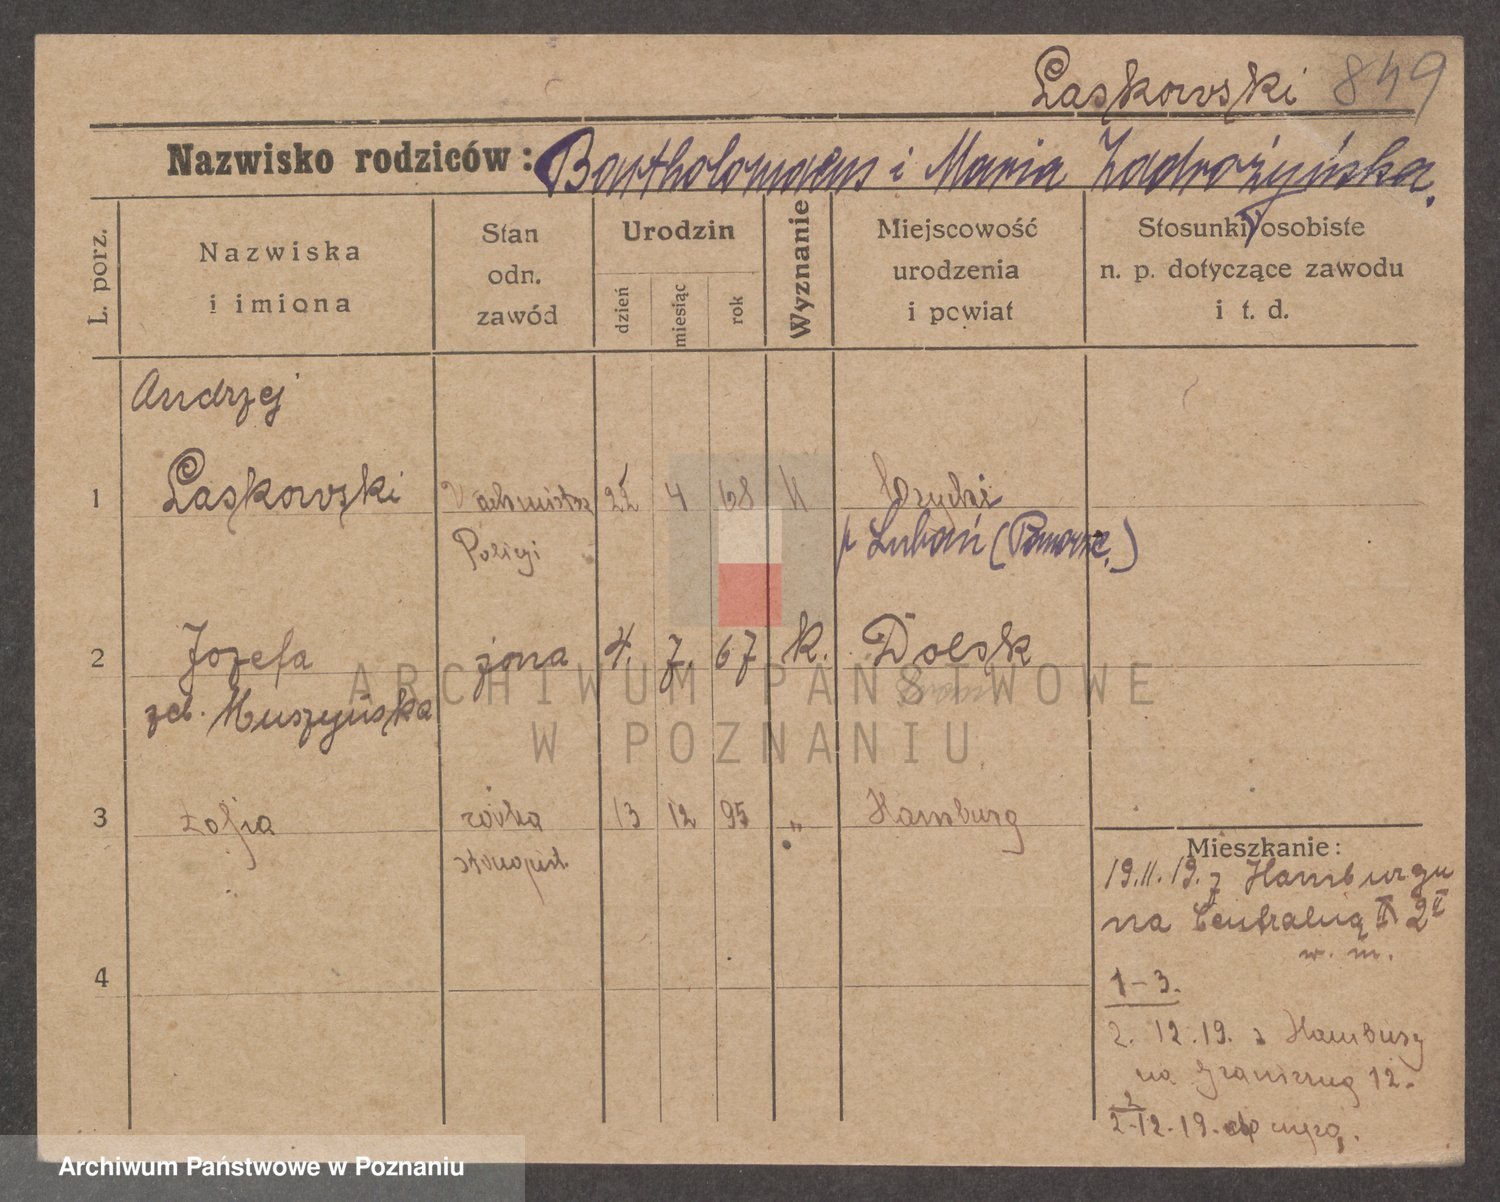 Laskowski 849
Nazwisko rodziców: Bartholomaeus i Maria Zadrożyńska.
L. porz.
Nazwiska
i imiona
Stan
odn.
zawód
Urodzin
dzień
miesiąc
rok
Wyznanie
Miejscowość
urodzenia
i powiat
Stosunki osobiste
n. p. dotyczące zawodu
i t. d.
Andrzej
1 Laskowski Wachmistrz 22 4 68 k
Policji p Lubań (Pomorze.)
2 Jozefa żona 4. 7. 67 k. Dolsk
zd. Muszyńska
3 Zofja córka 13 12 95 „ Hamburg
stenopist.
4
Mieszkanie:
19.11.19. z Hamburgu
na Centralną 2
w. m.
1-3.
2.12.19. z Hamburg
na Graniczną 12.
2
2.12.19. do
ARCHIWUM PAŃSTWOWE
W POZNANIU
Archiwum Państwowe w Poznaniu